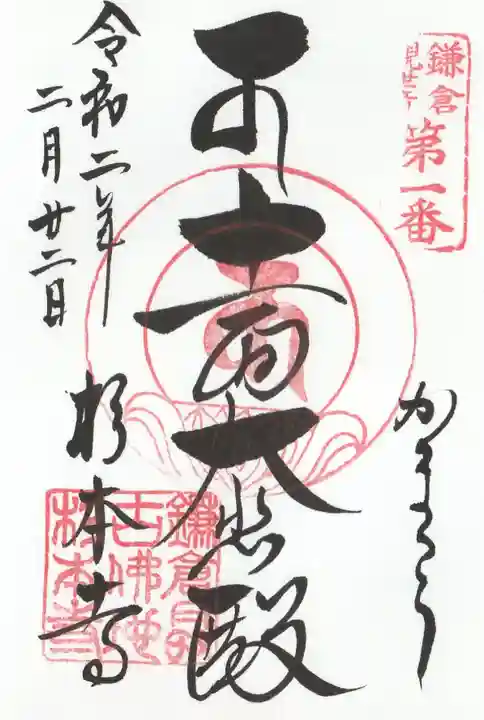 鎌倉
第一番
かまくら
十一面大悲殿
令和二年
二月廿二日
杉本寺
鎌倉最初
古佛地
杉本寺